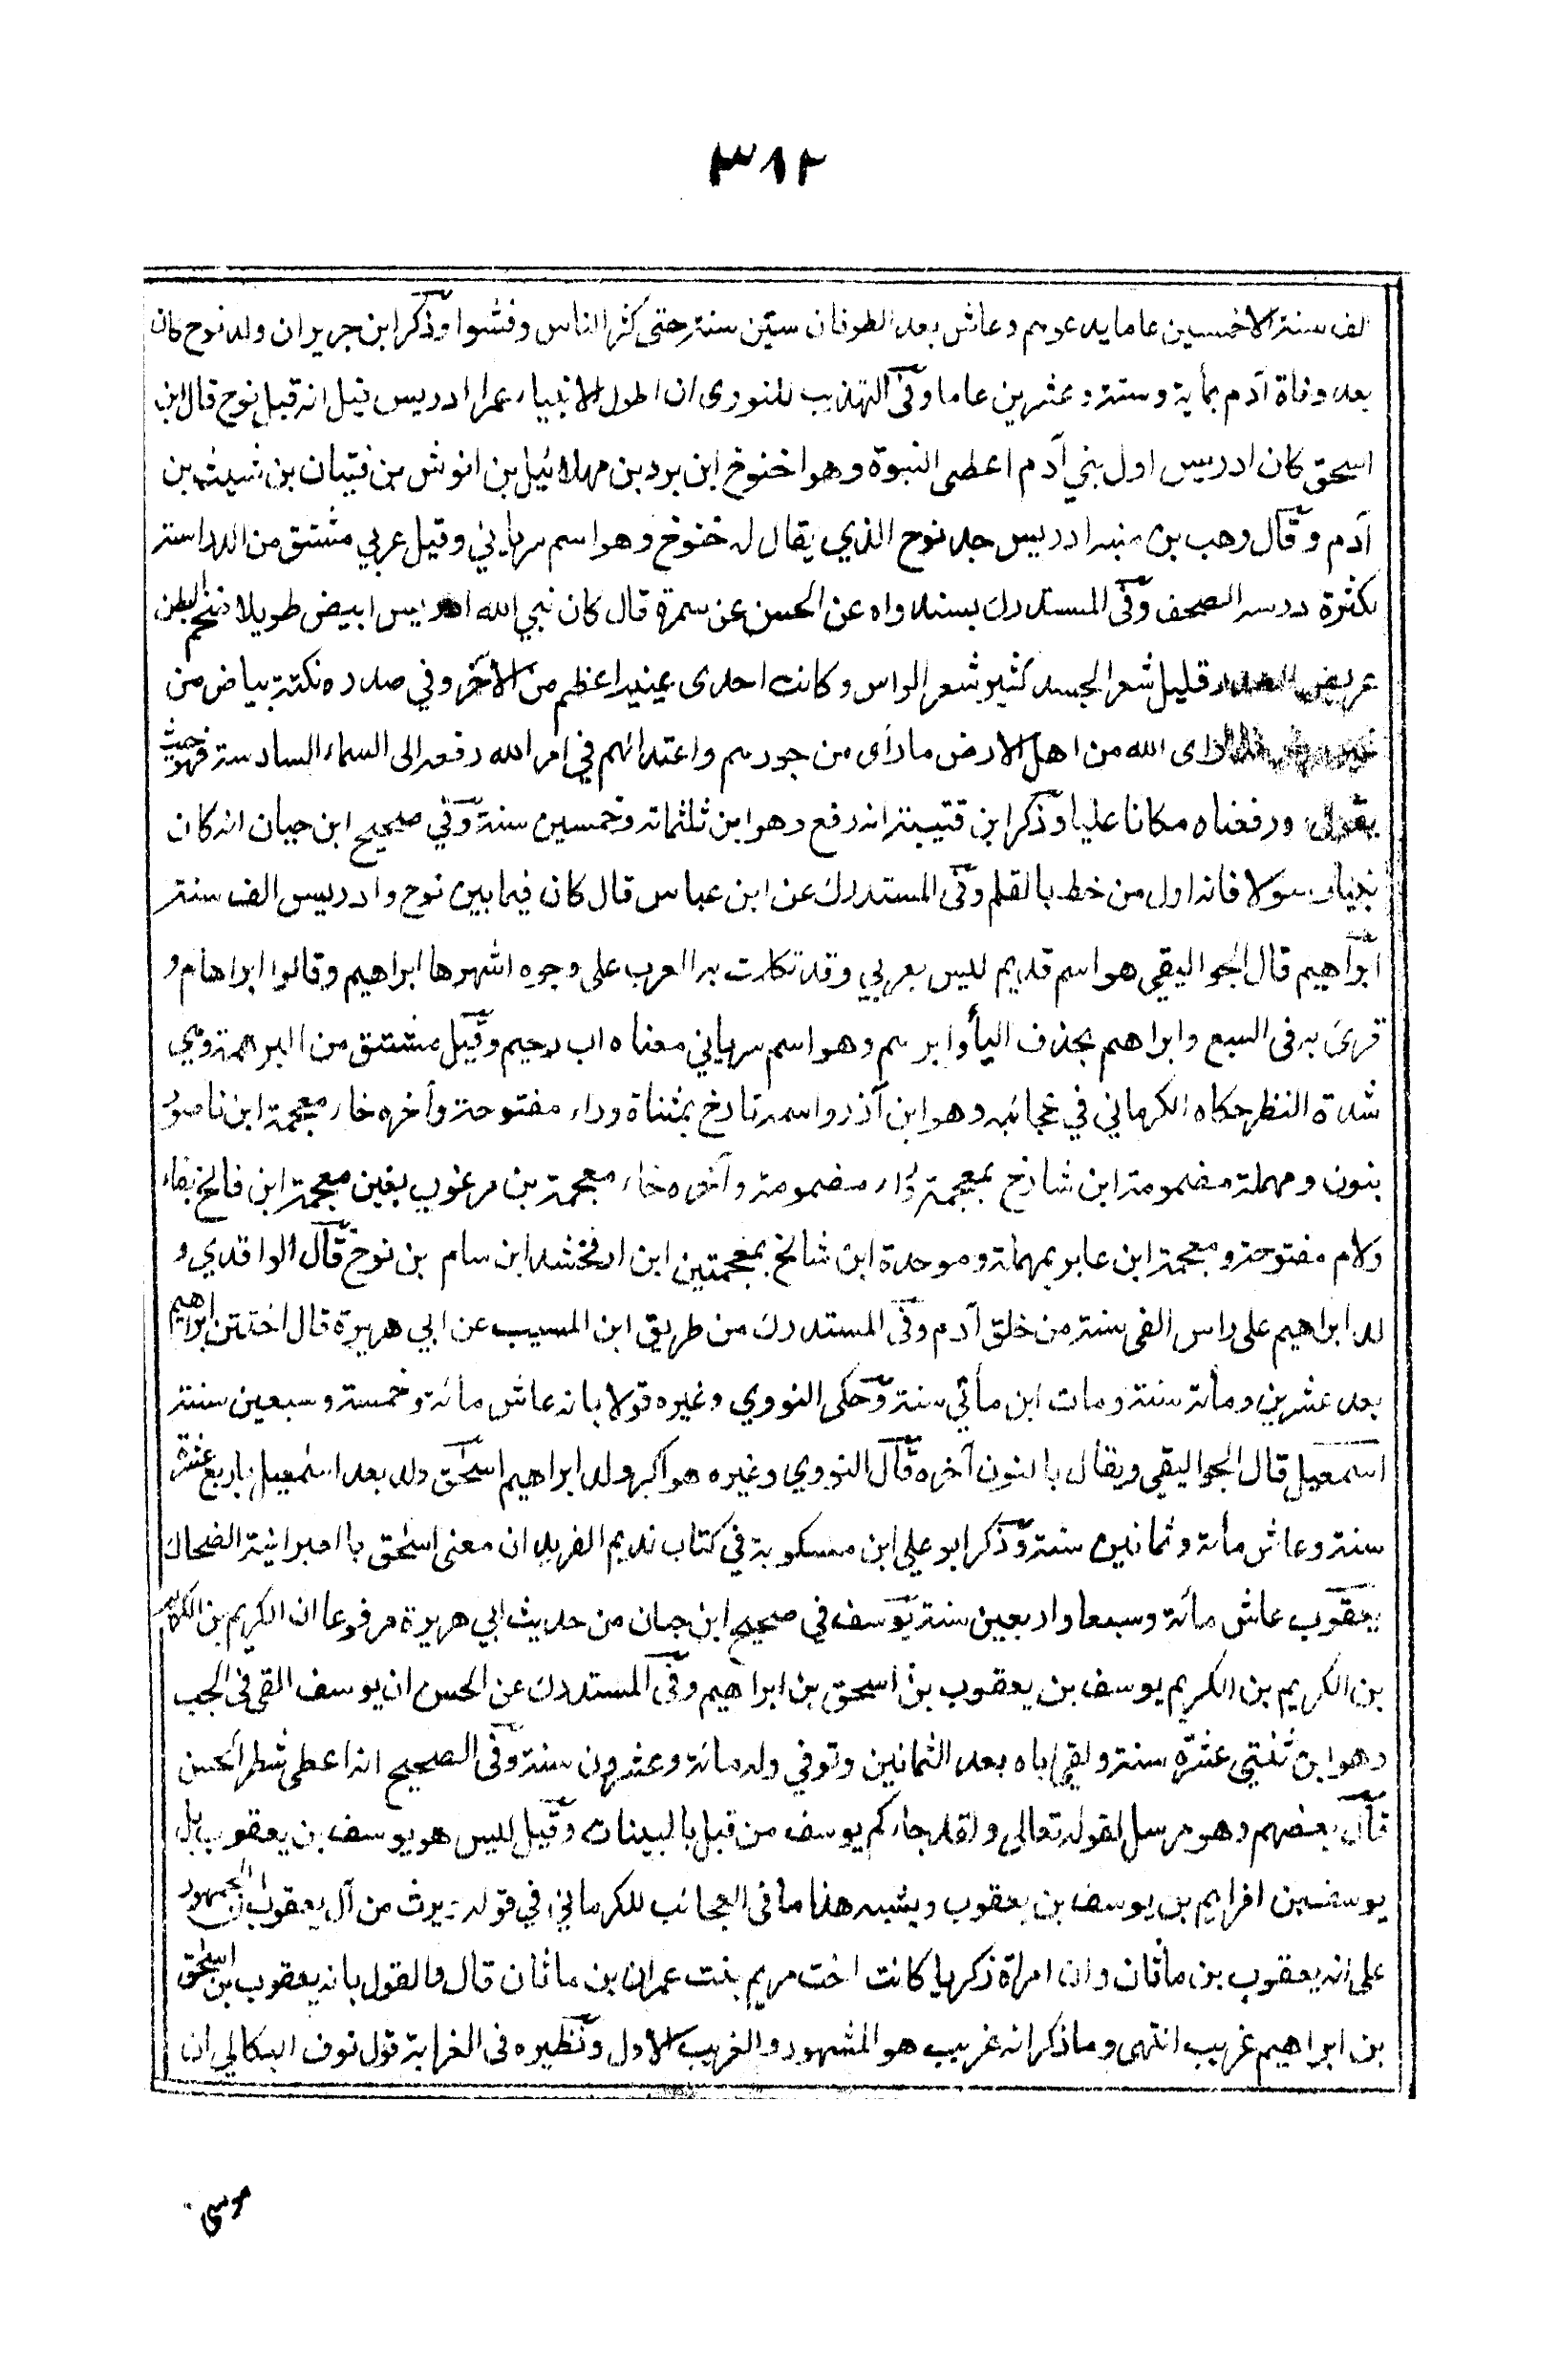 ٣١٢
الف سنة الا خمسين عاما يدعوهم وعاش بعد الطوفان ستين سنة حتى كثر الناس وفشوا وذكر ابن جرير ان ولد نوح كان
بعد وفاة آدم بمأية وستة وعشرين عاما وفى التهذيب للنووى ان اطول الانبياء عمرا ادريس قيل انه قبل نوح قال ابن
اسحق كان ادريس اول بني آدم اعطى النبوة وهو اخنوخ ابن برد بن مهلائيل بن انوش بن قتيان بن شيث بن
آدم وقال وهب بن منبه ادريس جد نوح الذي يقال له خنوخ وهو اسم سرياني وقيل عربي مشتق من الدراسة
لكثرة درسه الصحف وفى المستدرك بسند واه عن الحسن عن سمرة قال كان نبي الله ادريس ابيض طويلا ضخم البطن
عريض الصدر قليل شعر الجسد كثير شعر الراس وكانت احدى عينيه اعظم من الآخر وفي صدره نكتة بياض من
غير برص فلما رأى الله من اهل الارض ما رأى من جورهم واعتدائهم في امر الله رفعه الى السماء السادسة فهو حيث
يقول ورفعناه مكانا عليا وذكر ابن قتيبة انه رفع وهو ابن ثلثمائه وخمسين سنة وفي صحيح ابن حبان انه كان
نبيا رسولا فانه اول من خط بالقلم وفى المستدرك عن ابن عباس قال كان فيما بين نوح وادريس الف سنة
ابراهيم قال الجواليقي هو اسم قديم ليس بعربي وقد تكلمت به العرب على وجوه اشهرها ابراهيم وقالوا ابراهام و
قرئ به فى السبع وابراهم بحذف اليأ وابرهم وهو اسم سرياني معناه اب رحيم وقيل مشتق من البرهمة وهي
شدة النظر حكاه الكرماني في عجائبه وهو ابن آذر واسمه تارخ بمثناة وراء مفتوحة وأخره خاء معجمة ابن ناحور
بنون ومهملة مضمومة ابن شارخ بمعجمة وراء مضمومة وآخره خاء معجمة بن مرغوب بغين معجمة ابن فالخ بفاء
ولام مفتوحة ومعجمة ابن عابر بمهملة وموحدة ابن شالخ بمعجمتين ابن ارفخشد ابن سام بن نوح قال الواقدي و
لد ابراهيم على راس الفى سنة من خلق آدم وفى المستدرك من طريق ابن المسيب عن ابي هريرة قال اختتن ابراهيم
بعد عشرين ومائة سنة ومات ابن مأتي سنة وحكى النووي وغيره قولا بانه عاش مائة وخمسة وسبعين سنة
اسمعيل قال الجواليقي ويقال بالنون آخره قال النووي وغيره هو اكبر ولد ابراهيم اسحٰق ولد بعد اسمٰعيل باربع عشرة
سنة وعاش مأئة وثمانين سنة وذكر ابو علي ابن مسكوية في كتاب نديم الفريد ان معنى اسحٰق بالعبرانية الضحاك
يعقوب عاش مائة وسبعا واربعين سنة يوسف في صحيح ابن حبان من حديث ابي هريرة مرفوعا ان الكريم بن الكريم
بن الكريم بن الكريم يوسف بن يعقوب بن اسحق بن ابراهيم وفى المستدرك عن الحسن ان يوسف القى فى الجب
وهو ابن ثنتي عشرة سنة ولقي اباه بعد الثمانين وتوفي وله مائة وعشرون سنة وفى الصحيح انه اعطى شطر الحسن
قال بعضهم وهو مرسل لقوله تعالى ولقد جاءكم يوسف من قبل بالبينات وقيل ليس هو يوسف بن يعقوب بل
يوسف بن افرايم بن يوسف بن يعقوب ويشبه هذا ما فى العجائب للكرماني في قوله يرث من آل يعقوب ان الجمهور
على انه يعقوب بن ماثان وان امراة زكريا كانت اخت مريم بنت عمران بن ماثان قال والقول بانه يعقوب بن اسحٰق
بن ابراهيم غريب انتهى وما ذكر انه غريب هو المشهور والغريب الاول ونظيره فى الغرابة قول نوف البكالي ان
موسى